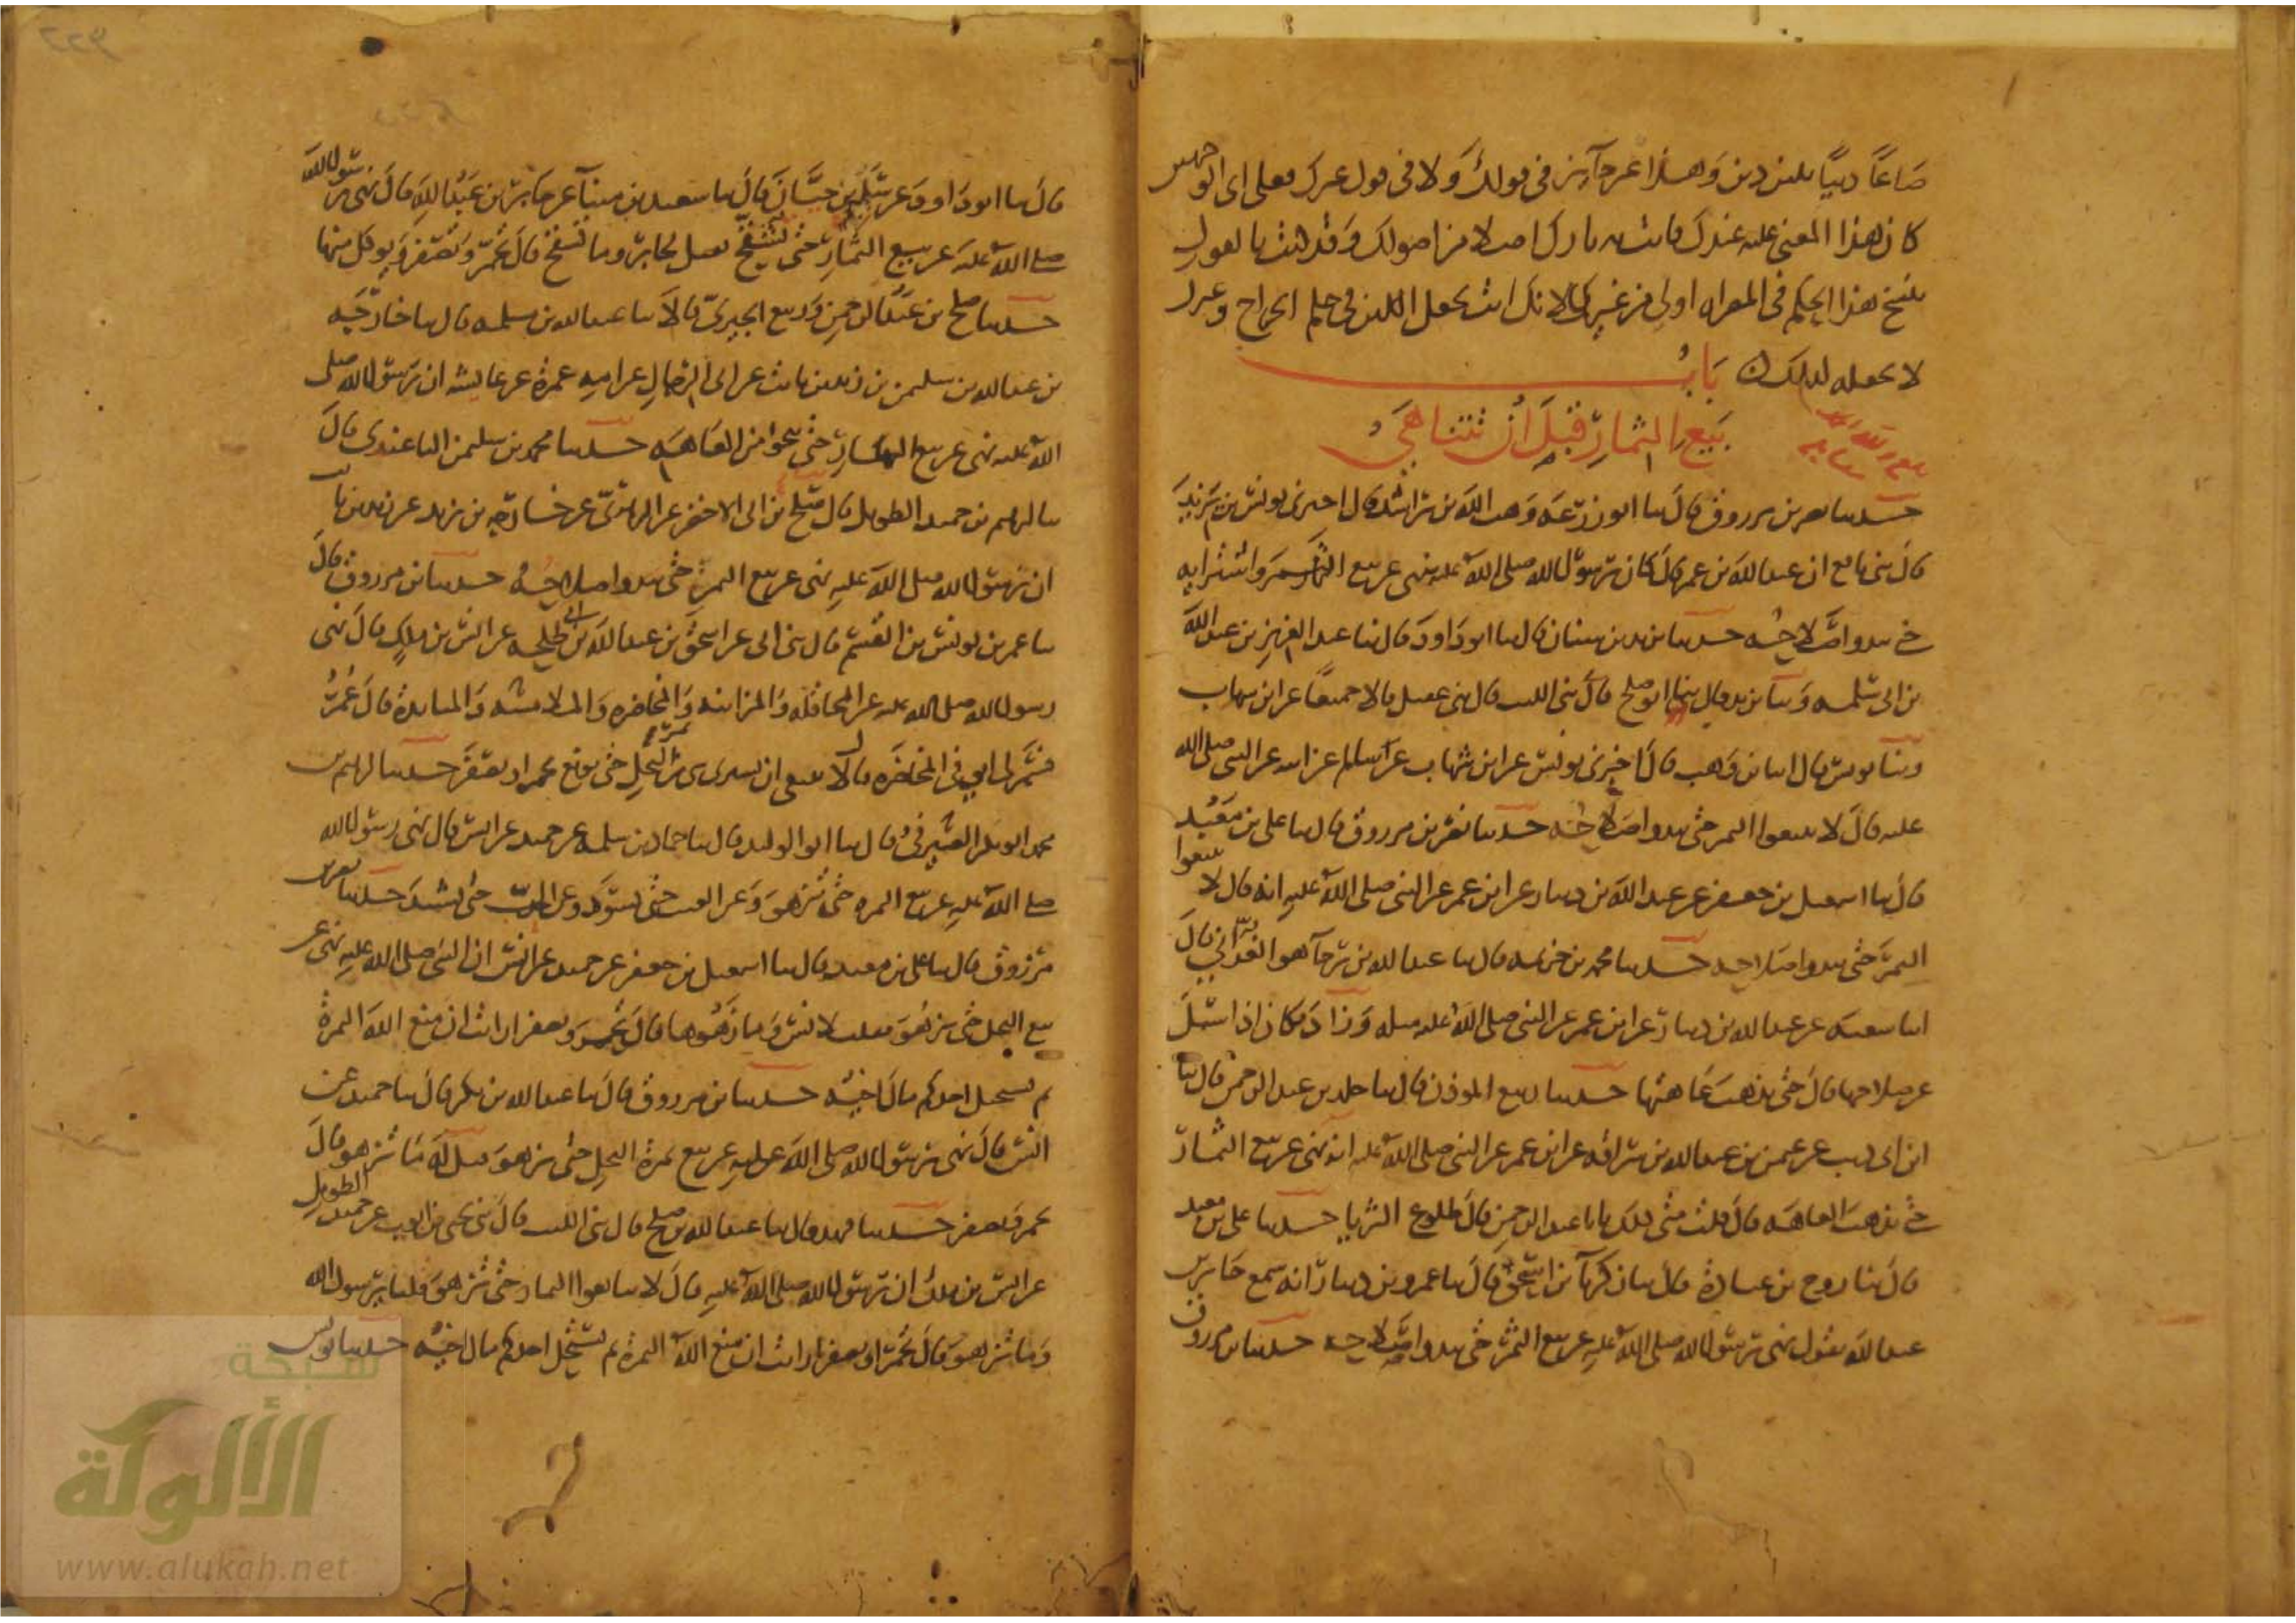 صاعًا دينًا بلبن دين وهذا غير جائز في قولك ولا في قول غيرك فعلى أي الوجهين
كان هذا المعنى عليه عندك فأنت به تارك أصلا من أصولك وقد كنت بالقول
بنسخ هذا الحكم في المصراة أولى من غيرك لأنك أنت تجعل اللبن في حكم الخراج وغيرك
لا يجعله كذلك باب
بيع الثمار قبل أن تتناهى
حدثنا نصر بن مرزوق قال ثنا أبو زرعة وهب الله بن راشد قال أخبرني يونس بن يزيد
قال ثني نافع أن عبد الله بن عمر قال كان رسول الله صلى الله عليه ينهى عن بيع الثمر واشترائه
حتى يبدو صلاحه حدثنا يزيد بن سنان قال ثنا أبو داود قال ثنا عبد العزيز بن عبد الله
بن أبي سلمة وثنا يزيد قال ثنا أبو صلح قال ثني الليث قال ثني عقيل قالا جميعًا عن ابن شهاب
وثنا يونس قال أنبا ابن وهب قال أخبرني يونس عن ابن شهاب عن سالم عن ابيه عن النبي صلى الله
عليه قال لا تبيعوا الثمر حتى يبدو صلاحه حدثنا نصر بن مرزوق قال ثنا علي بن معبد
قال ثنا اسمعيل بن جعفر عن عبد الله بن دينار عن ابن عمر عن النبي صلى الله عليه انه قال لا تبيعوا
الثمر حتى يبدو صلاحه حدثنا محمد بن خزيمة قال ثنا عبد الله بن رجاء هو الغداني قال
انبا شعبة عن عبد الله بن دينار عن ابن عمر عن النبي صلى الله عليه مثله وزاد فكان اذا سئل
عن صلاحها قال حتى تذهب عاهتها حدثنا ربيع المؤذن قال ثنا خلد بن عبد الرحمن قال ثنا
ابن ابي ذيب عن عثمن بن عبد الله بن سراقة عن ابن عمر عن النبي صلى الله عليه انه نهى عن بيع الثمار
حتى تذهب العاهة قال قلت متى ذلك يابا عبد الرحمن قال طلوع الثريا حدثنا علي بن معبد
قال ثنا روح بن عبادة قال ثنا زكريا بن اسحق قال ثنا عمرو بن دينار انه سمع جابر بن
عبد الله يقول نهى رسول الله صلى الله عليه عن بيع الثمر حتى يبدو صلاحه حدثنا ابن مرزوق
قال ثنا ابو داود عن سليم بن حيان قال ثنا سعيد بن ميناء عن جابر بن عبد الله قال نهى رسول الله
صلى الله عليه عن بيع الثمار حتى تشقح فقيل لجابر وما تشقح قال تحمر وتصفر ويؤكل منها
حدثنا صلح بن عبد الرحمن وربيع الجيزي قالا ثنا عبد الله بن مسلمة قال ثنا خارجة
بن عبد الله بن سليمن بن زيد بن ثابت عن ابي الرجال عن امه عمرة عن عايشة ان رسول الله صلى
الله عليه نهى عن بيع الثمار حتى تنجوا من العاهة حدثنا محمد بن سليمن الباغندي قال
ثنا ابرهيم بن حميد الطويل قال ثنا صلح بن ابي الاخضر عن الزهري عن خارجة بن زيد عن زيد بن ثابت
ان رسول الله صلى الله عليه نهى عن بيع الثمر حتى يبدو صلاحه حدثنا ابن مرزوق قال
ثنا عمر بن يونس بن القسم قال ثني ابي عن اسحق بن عبد الله بن ابي طلحة عن انس بن ملك قال نهى
رسول الله صلى الله عليه عن المحاقلة والمزابنة والمخاضرة والملامسة والمنابذة قال عمر
فسر لي ابي في المخاضرة قال لا ينبغي ان يشترى شي من ثمر النخل حتى يونع يحمر او يصفر حدثنا ابرهيم بن
محمد ابو بكر الصيرفي قال ثنا ابو الوليد قال ثنا حماد بن سلمة عن حميد عن انس قال نهى رسول الله
صلى الله عليه عن بيع الثمرة حتى تزهو وعن العنب حتى يسود وعن الحب حتى يشتد حدثنا نصر بن
مرزوق قال ثنا علي بن معبد قال ثنا اسمعيل بن جعفر عن حميد عن انس ان النبي صلى الله عليه نهى عن
بيع النخل حتى يزهو فقلت لانس وما زهوها قال تحمر وتصفر ارايت ان منع الله الثمرة
بم يستحل احدكم مال اخيه حدثنا ابن مرزوق قال ثنا عبد الله بن بكر قال ثنا حميد عن
انس قال نهى رسول الله صلى الله عليه عن بيع ثمرة النخل حتى تزهو قيل له ما تزهو قال
تحمر وتصفر حدثنا فهد قال ثنا عبد الله بن صلح قال ثني الليث قال ثني يحيى بن ايوب عن حميد الطويل
عن انس بن ملك ان رسول الله صلى الله عليه قال لا تبايعوا الثمار حتى تزهو قلنا يا رسول الله
وما تزهو قال تحمر او تصفر ارايت ان منع الله الثمرة بم يستحل احدكم مال اخيه حدثنا يونس
شبكة
الألوكة
www.alukah.net